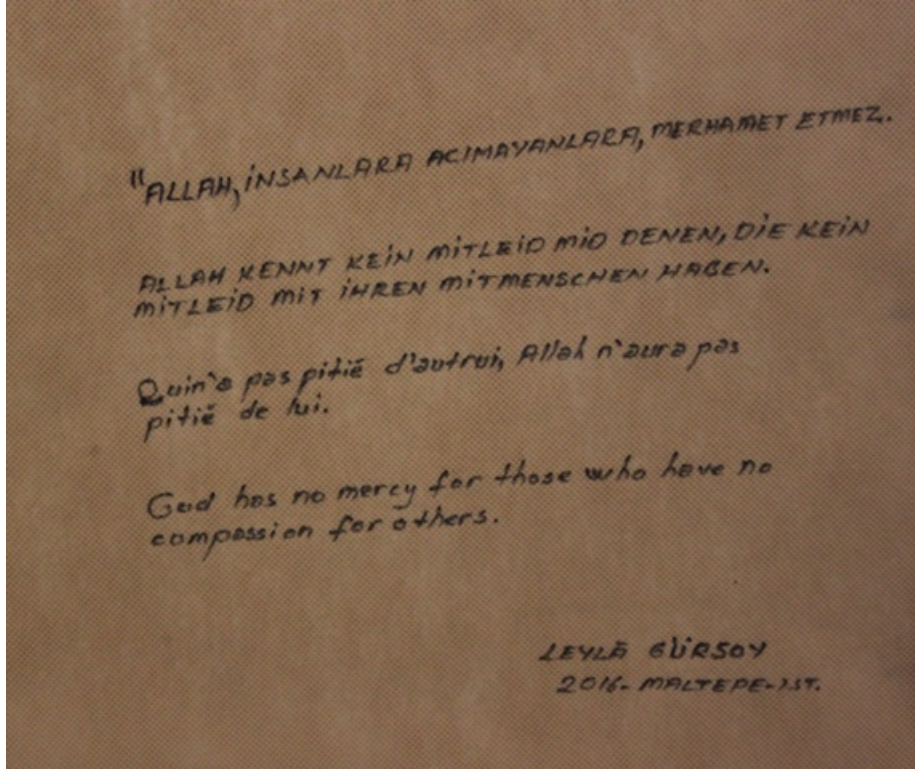 "ALLAH, İNSANLARA ACIMAYANLARA, MERHAMET ETMEZ..
ALLAH KENNT KEİN MİTLEİD MİD DENEN, DİE KEİN
MİTLEİD MİT İHREN MİTMENSCHEN HABEN.
Quin'a pas pitié d'autrui, Allah n'aura pas
pitié de lui.
God has no mercy for those who have no
compassion for others.
LEYLÂ GÜRSOY
2016-MALTEPE-İST.